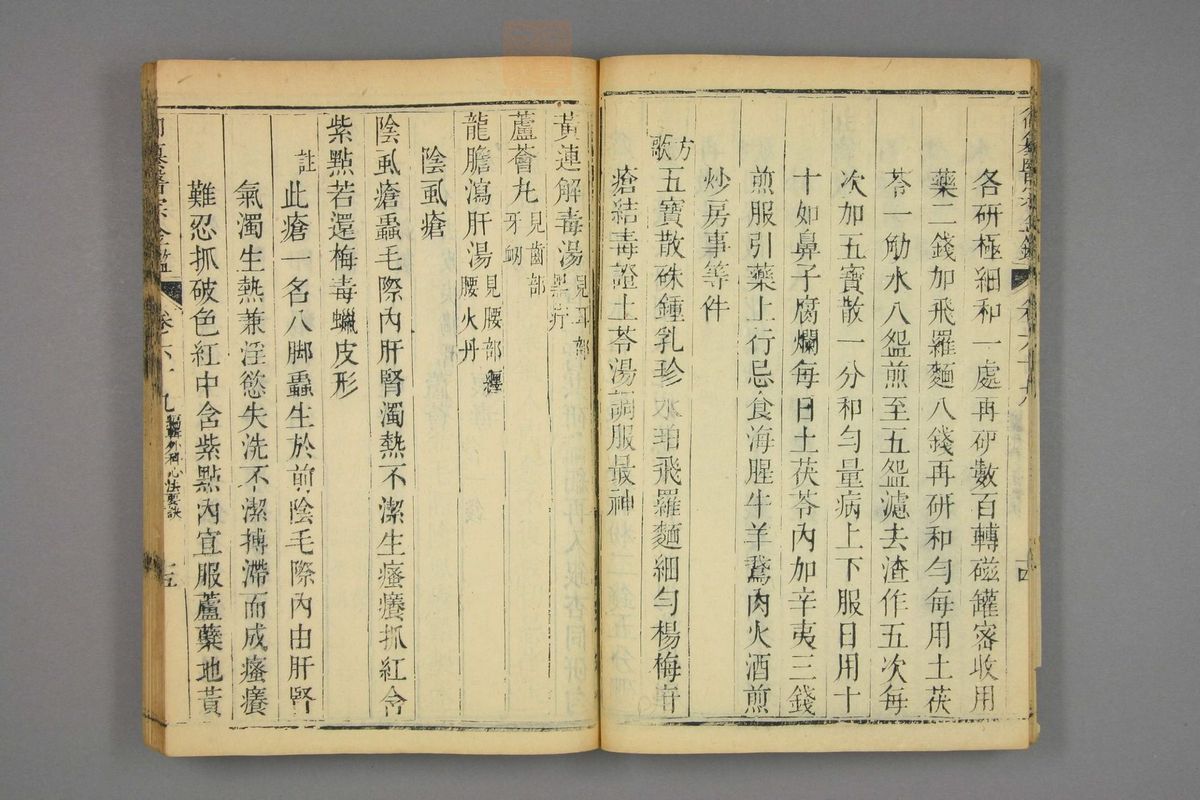 各研極細和一處再研數百轉磁罐密收用
藥二錢加飛羅麵八錢再研和勻每用土茯
苓一觔水八盌煎至五盌濾去渣作五次每
次加五寶散一分和勻量病上下服日用十
十如鼻子腐爛每日土茯苓內加辛夷三錢
煎服引藥上行忌食海腥牛羊鵞肉火酒煎
炒房事等件
方歌
五寶散硃鍾乳珍氷珀飛羅麵細勻楊梅疳
瘡結毒證土苓湯調服最神
黃連解毒湯見耳部黑疔
蘆薈丸見齒部牙衂
龍膽瀉肝湯見腰部纏腰火丹
陰虱瘡
陰虱瘡蟲毛際內肝腎濁熱不潔生瘙癢抓紅含
紫點若還梅毒蠟皮形
註此瘡一名八脚蟲生於前陰毛際內由肝腎
氣濁生熱兼淫慾失洗不潔搏滯而成瘙癢
難忍抓破色紅中含紫點內宜服蘆蘗地黃